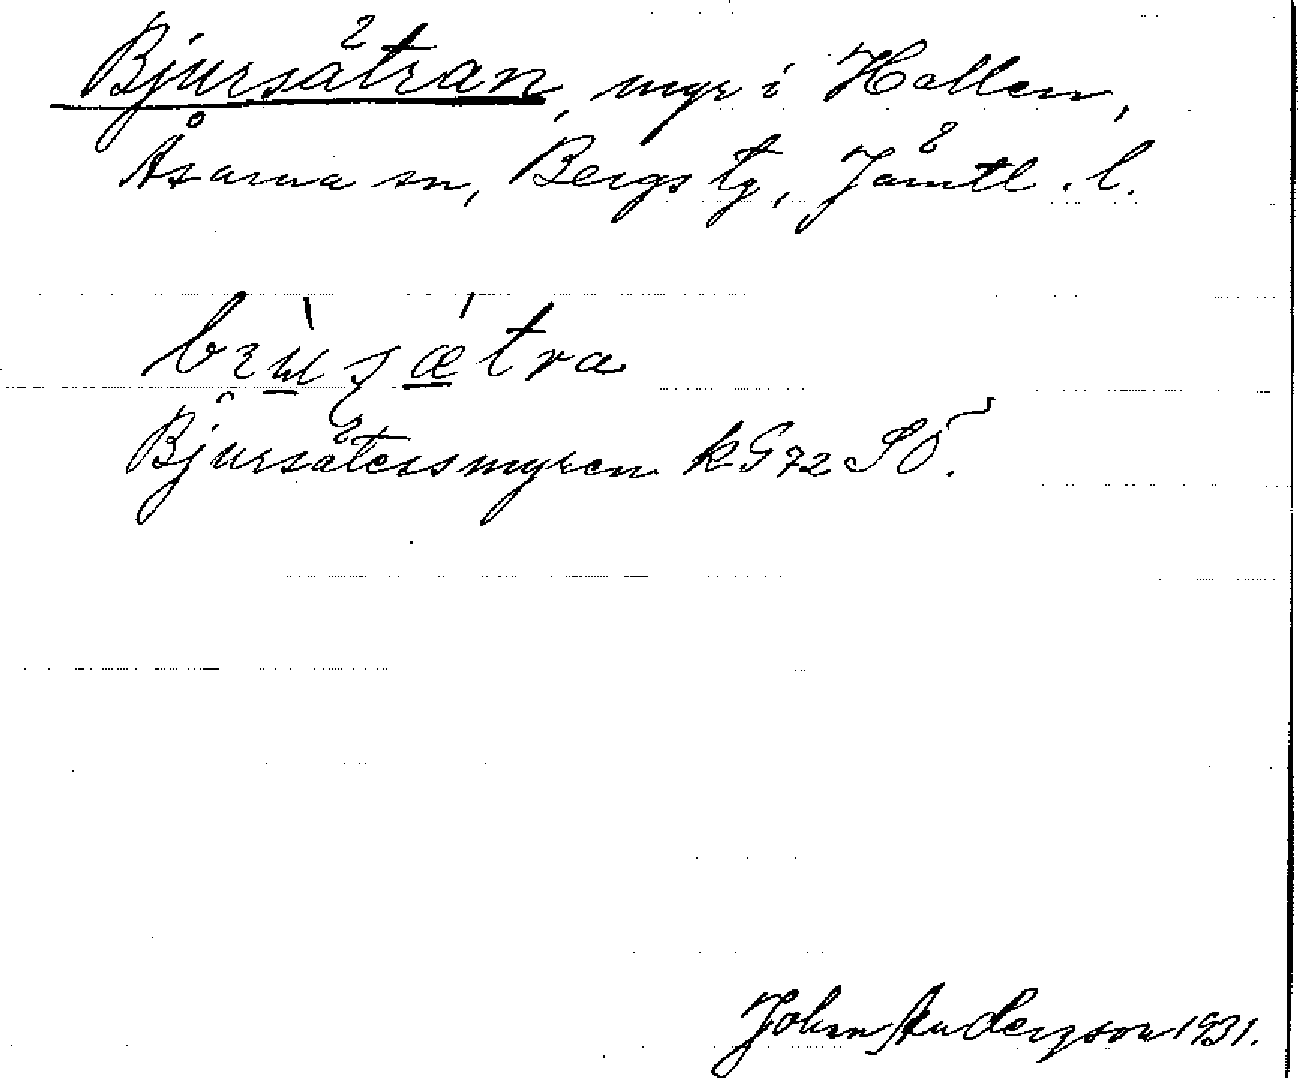 Bjursätran, myr i Hallen,
Åsarna sn, Bergs tg, Jämtl. l.
Bjursätersmyren kG 72 SÖ.
John Anderzson 1931.